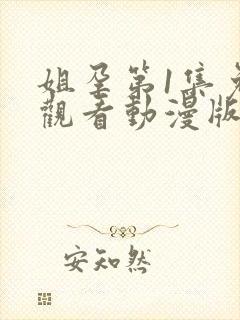 姐孕第1集免
觀看動漫版
安知然